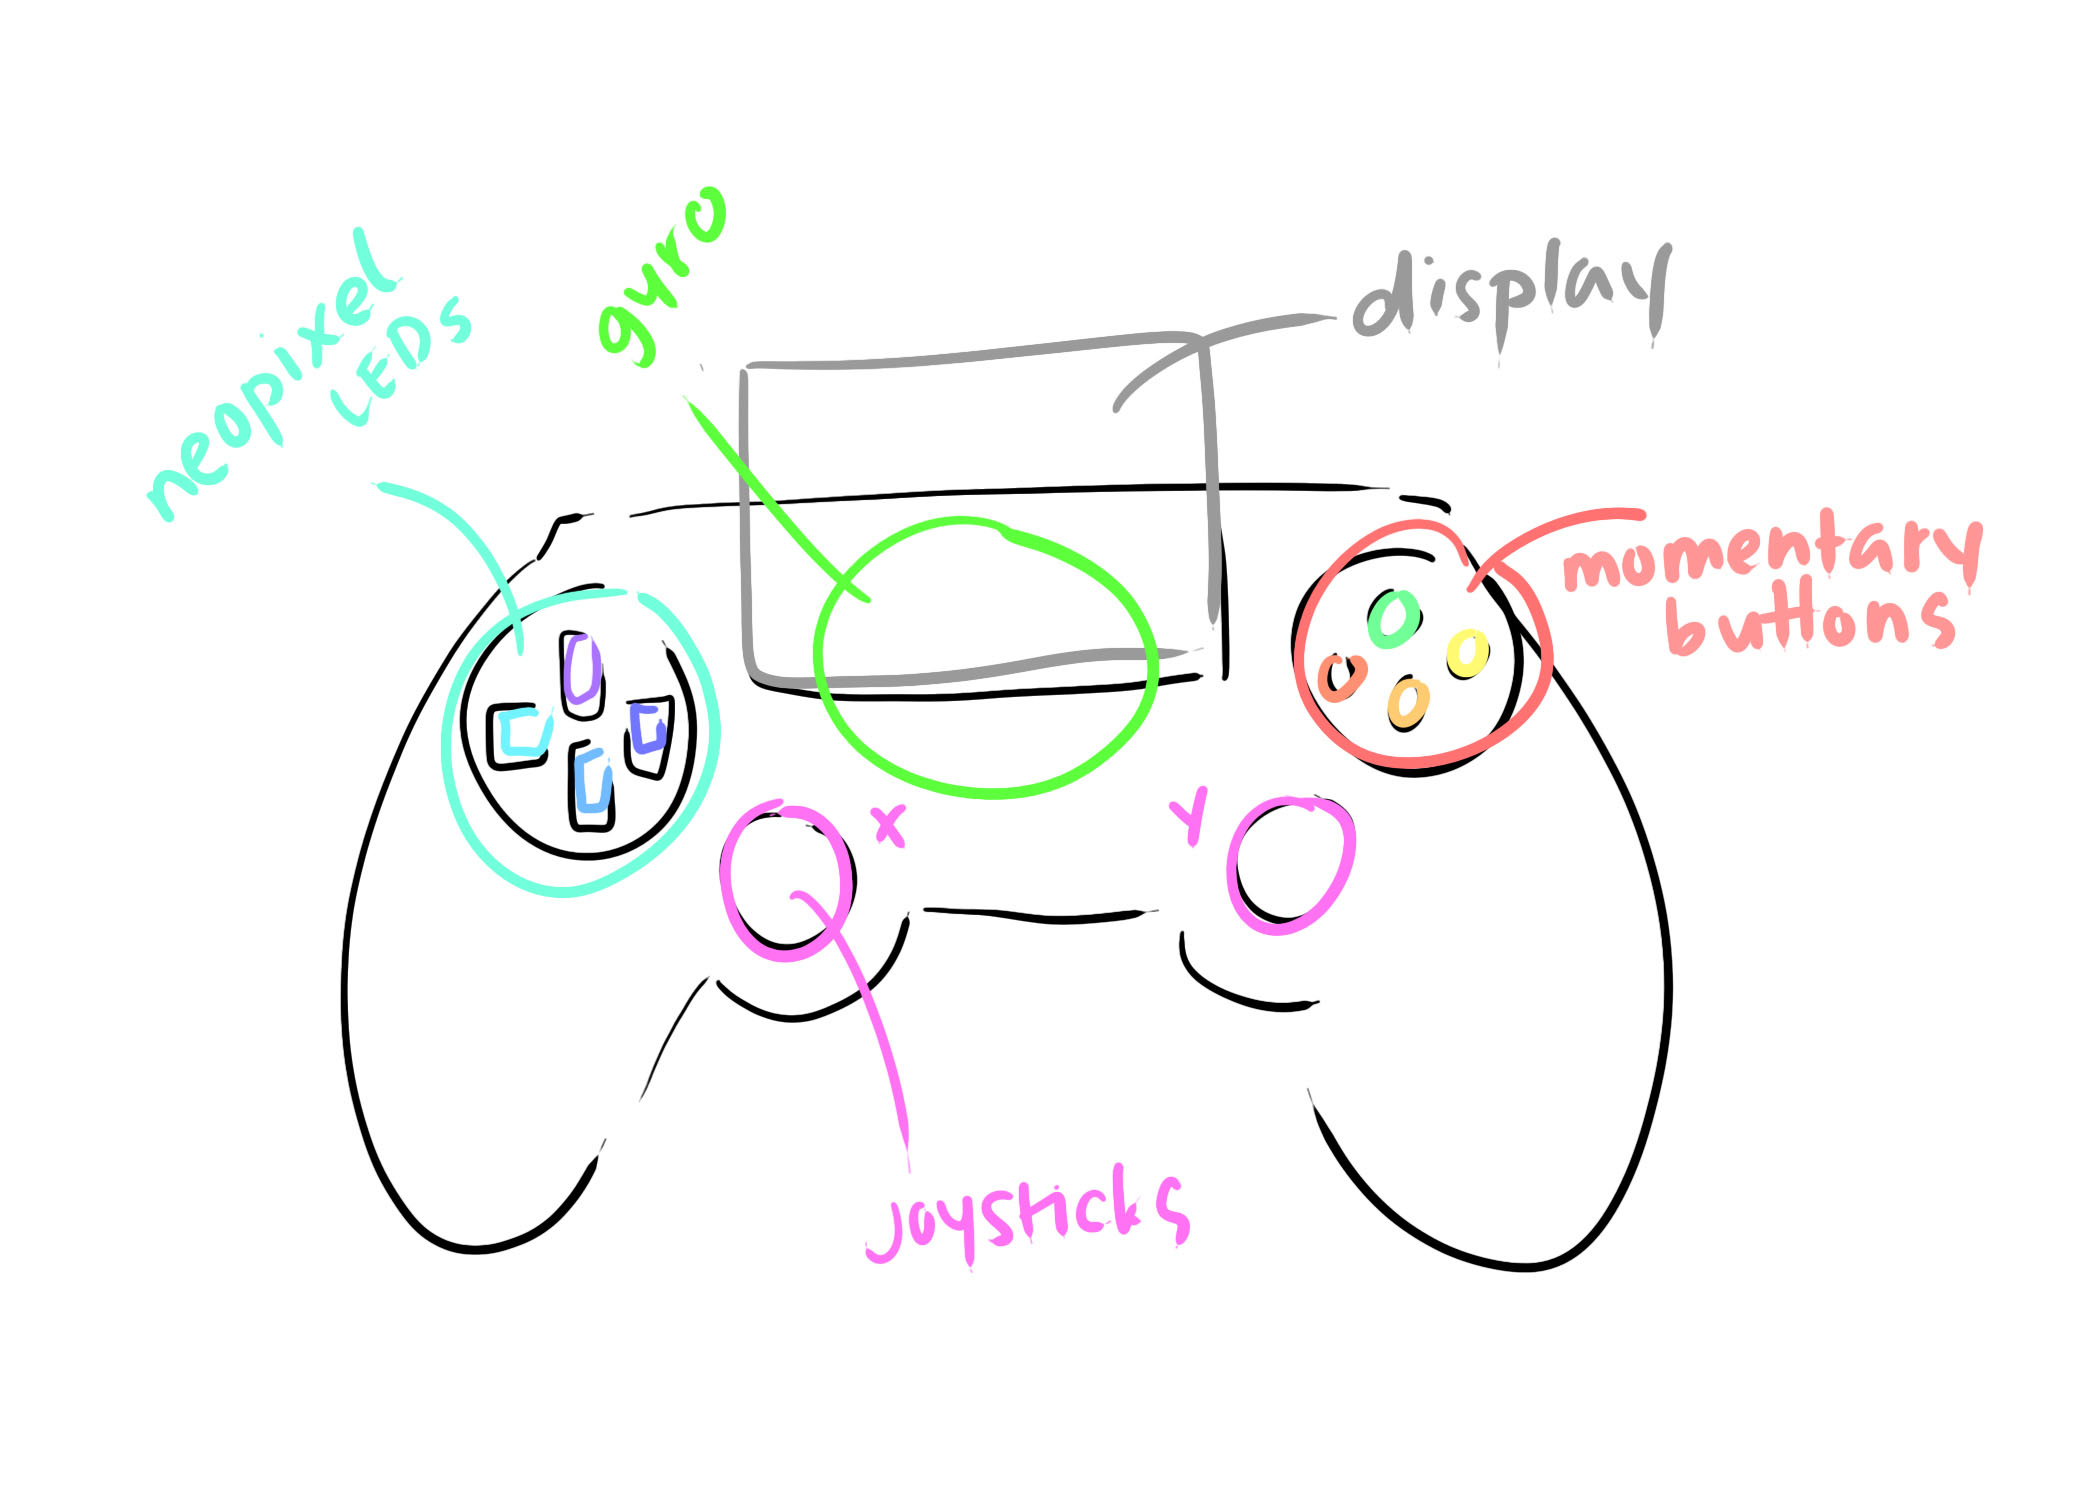 neopixel
LEDs
gyro
display
momentary
buttons
X
Y
joysticks